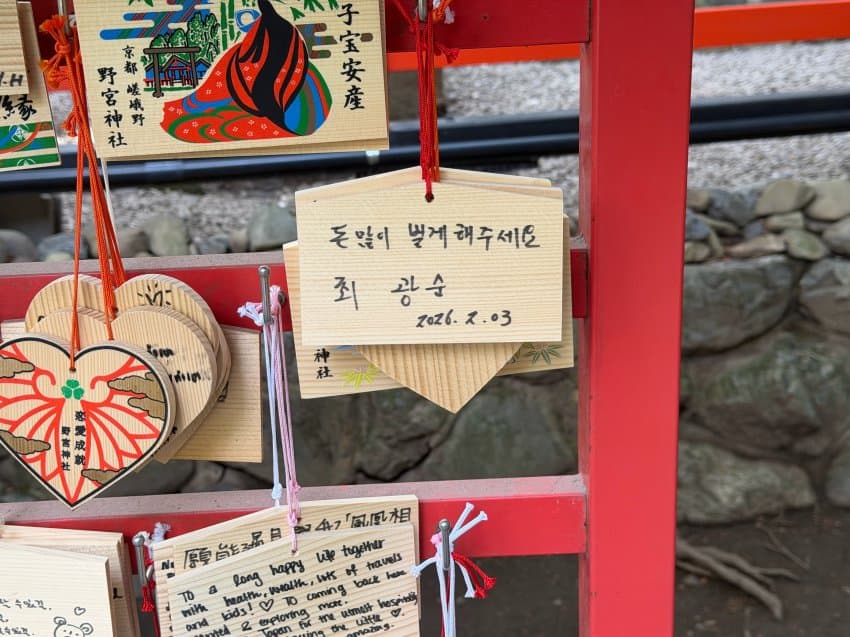 子宝安産
京都 嵯峨野
野宮神社
.H
縁
돈많이 벌게해주세요
최 광순
2026.2.03
神社
恋愛成就
野宮神社
願能
「鳳凰相
To a long happy life together
with health, wealth, lots of travels
and kids! ♡ To coming back here
& exploring more.
Japan for the utmost
the little ♡
amazing.